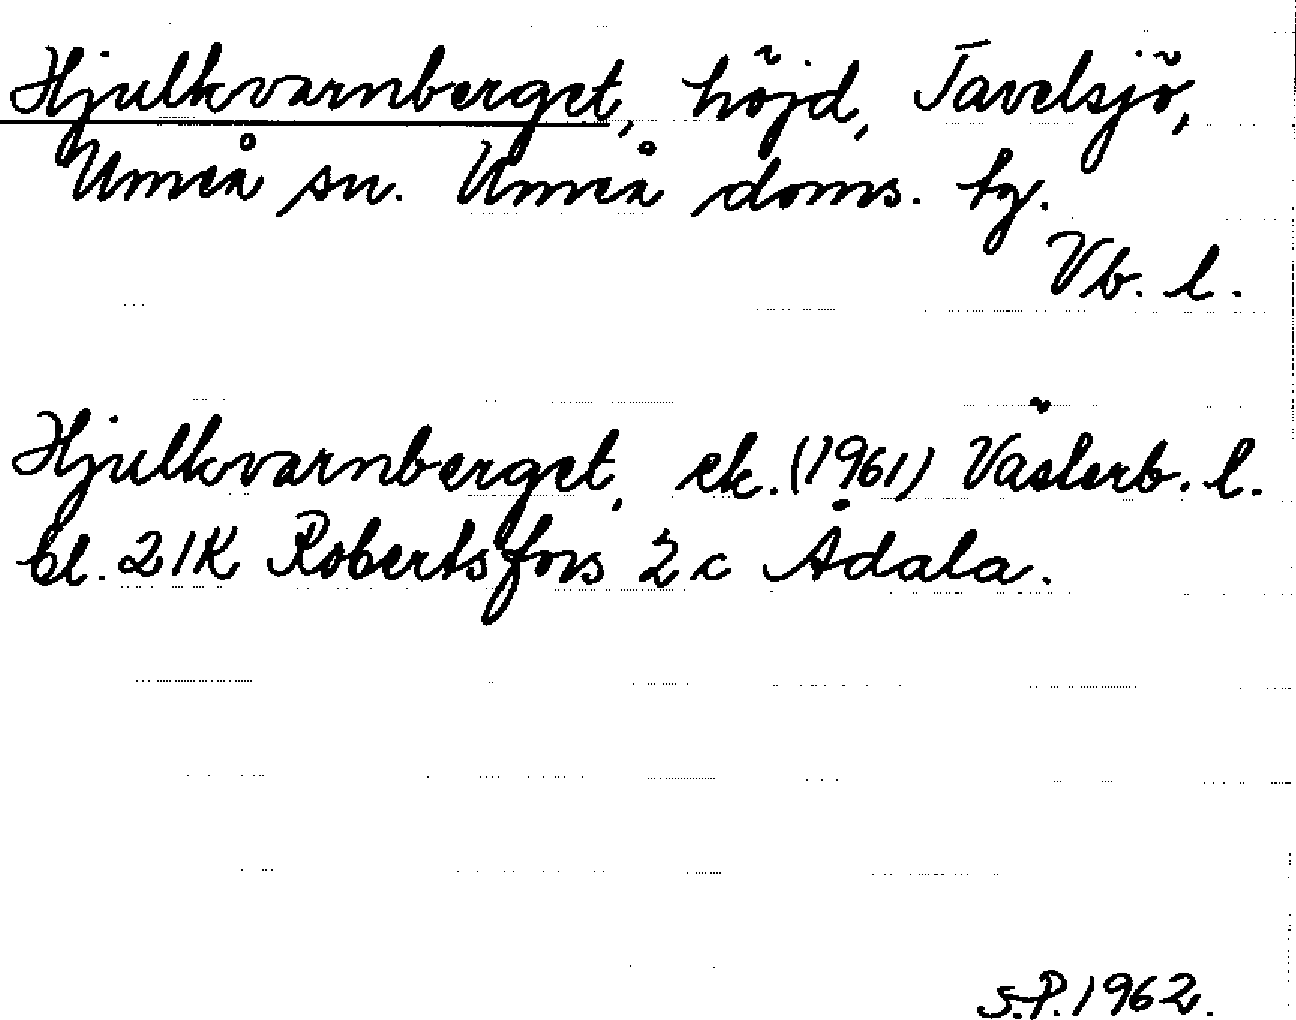 Hjulkvarnberget, höjd, Tavelsjö,
Umeå sn. Umeå doms. tg.
Vb. l.
Hjulkvarnberget, ek. (1961) Västerb. l.
bl. 21K Robertsfors 2c Ådala.
S.P. 1962.